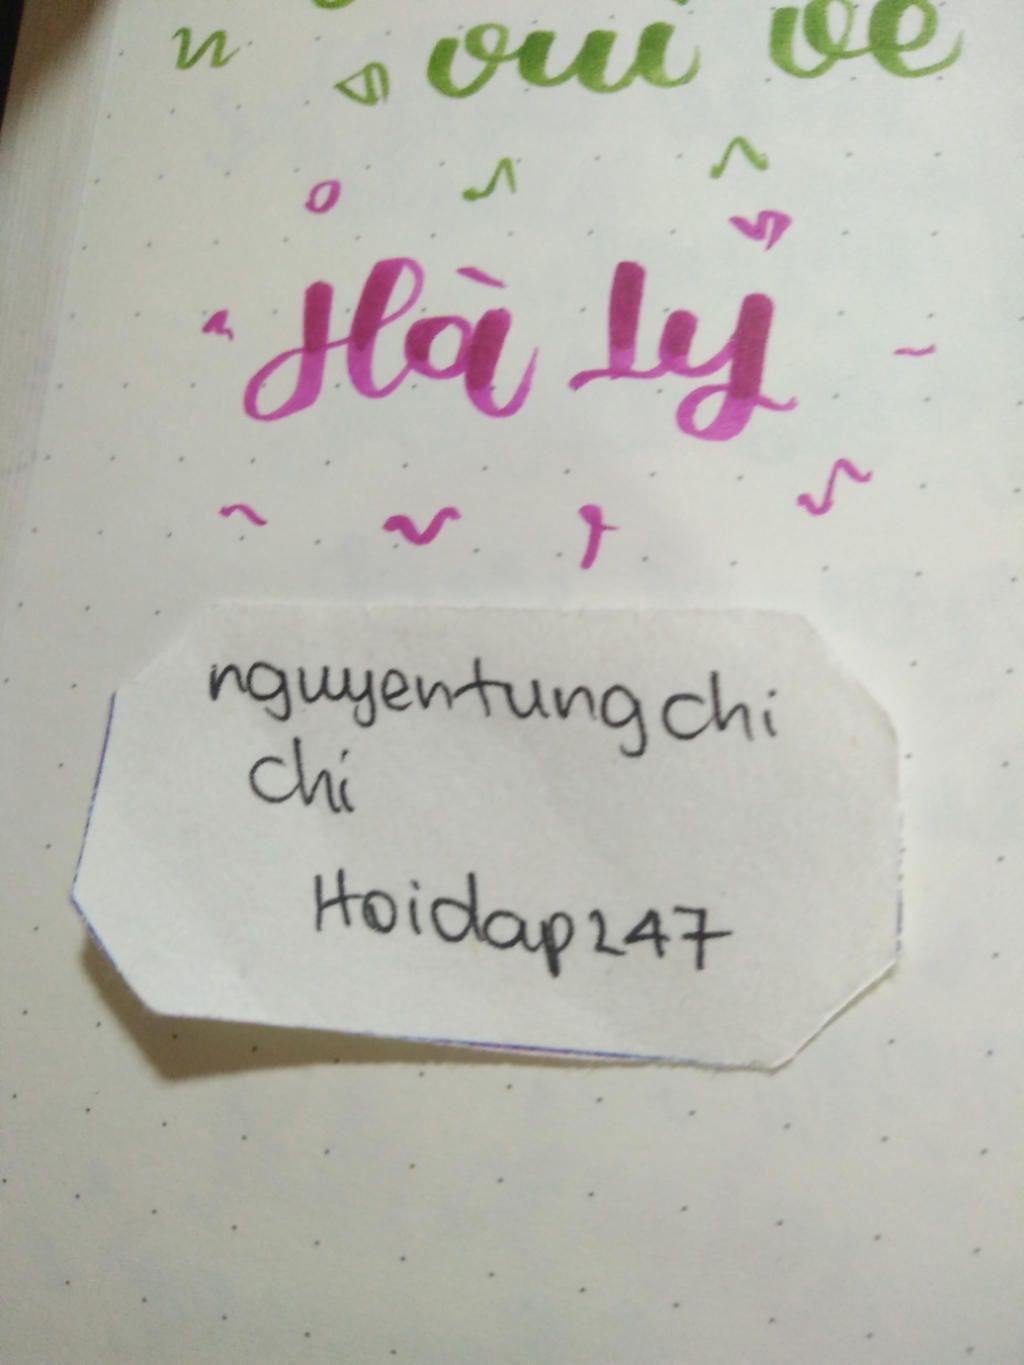 vui vẻ
Hà Lý
nguyentungchi
chi
Hoidap247